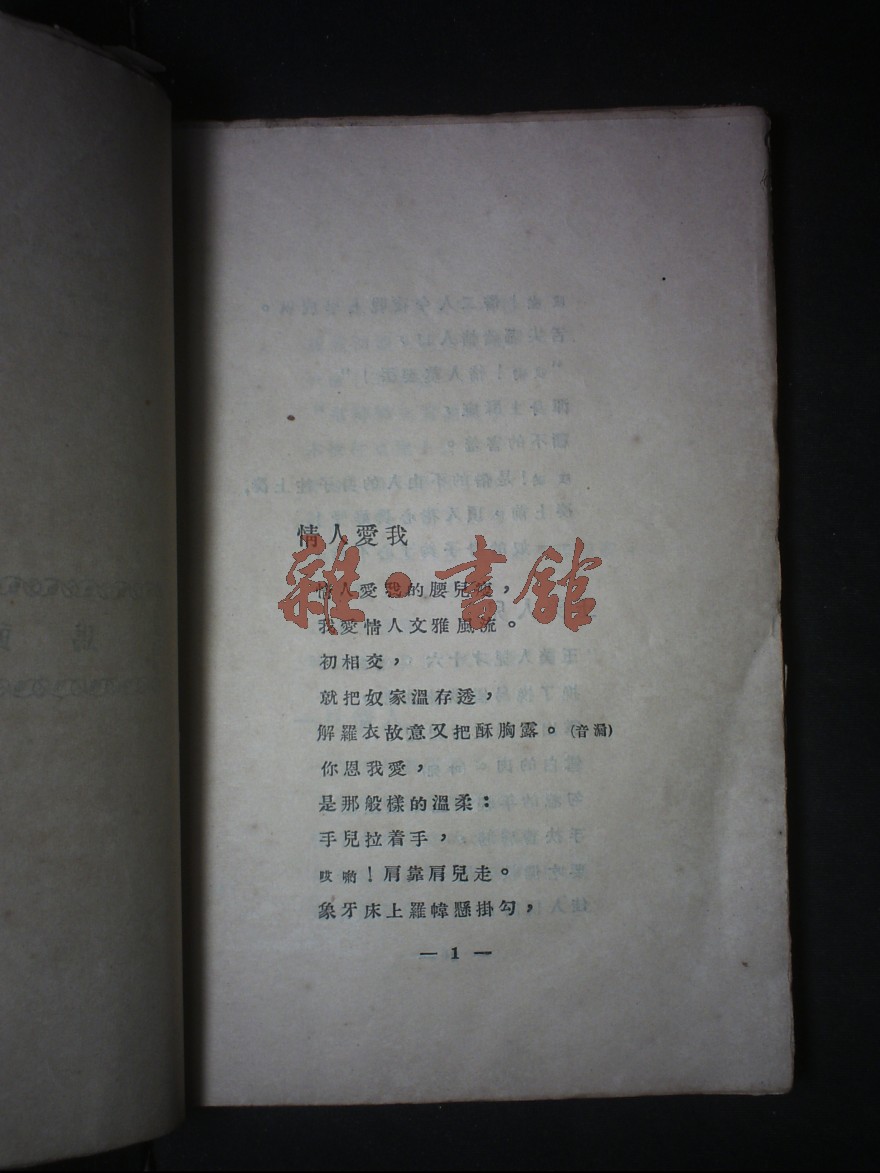 情人愛我
情人愛我的腰兒瘦，
我愛情人文雅風流。
初相交，
就把奴家溫存透，
解羅衣故意又把酥胸露。(音漏)
你恩我愛，
是那般樣的溫柔：
手兒拉着手，
哎喲！肩靠肩兒走。
象牙床上羅幃懸掛勾，
— 1 —
雜·書館